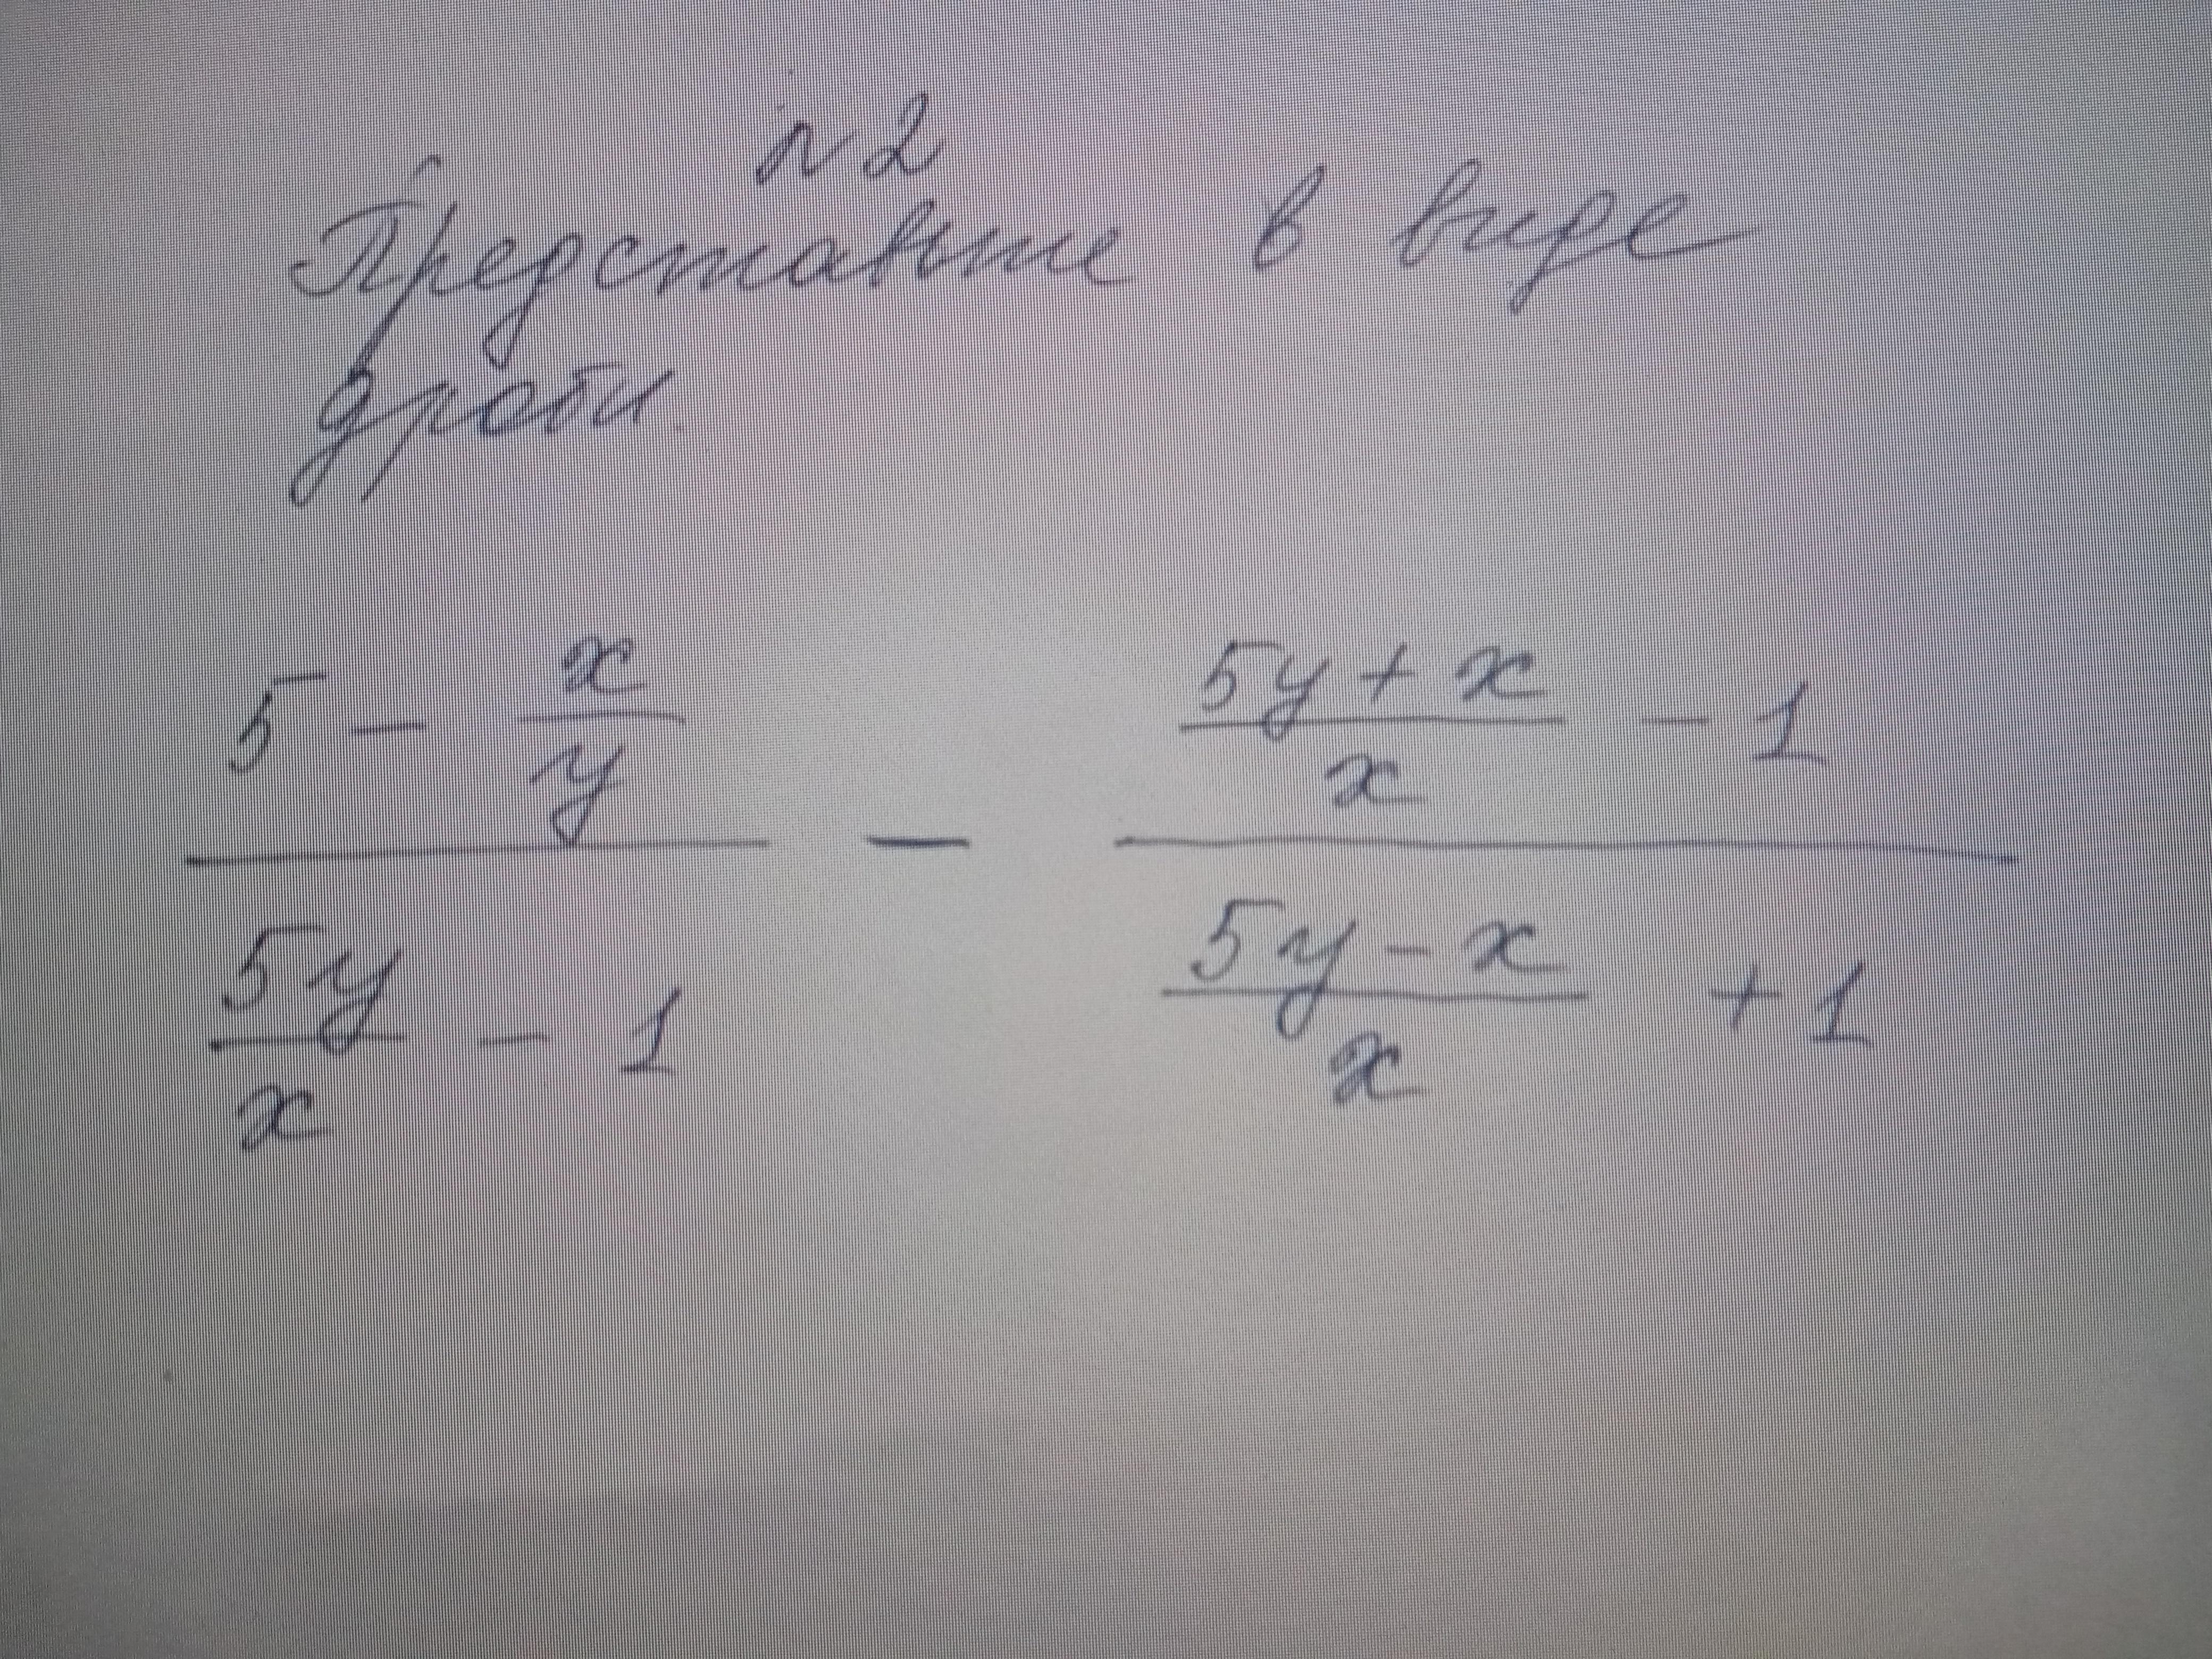 N2
Представьте в виде
дроби
5 - x/y
5y/x - 1
-
(5y + x)/x - 1
(5y - x)/x + 1